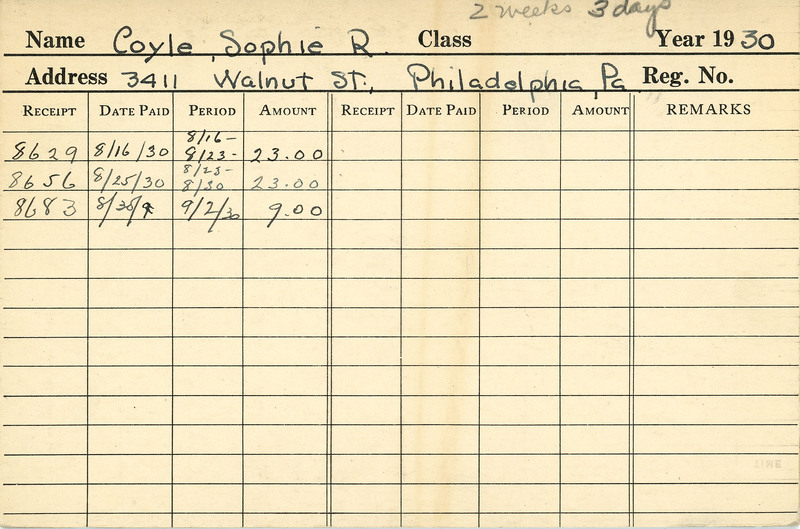 2 weeks 3 days
Name Coyle, Sophie R. Class Year 19 30
Address 3411 Walnut St., Philadelphia, Pa. Reg. No.
RECEIPT DATE PAID PERIOD AMOUNT RECEIPT DATE PAID PERIOD AMOUNT REMARKS
8/16-
8629 8/16/30 8/23- 23.00
8/23-
8656 8/25/30 8/30 23.00
8683 9/2/30 9.00
LINE